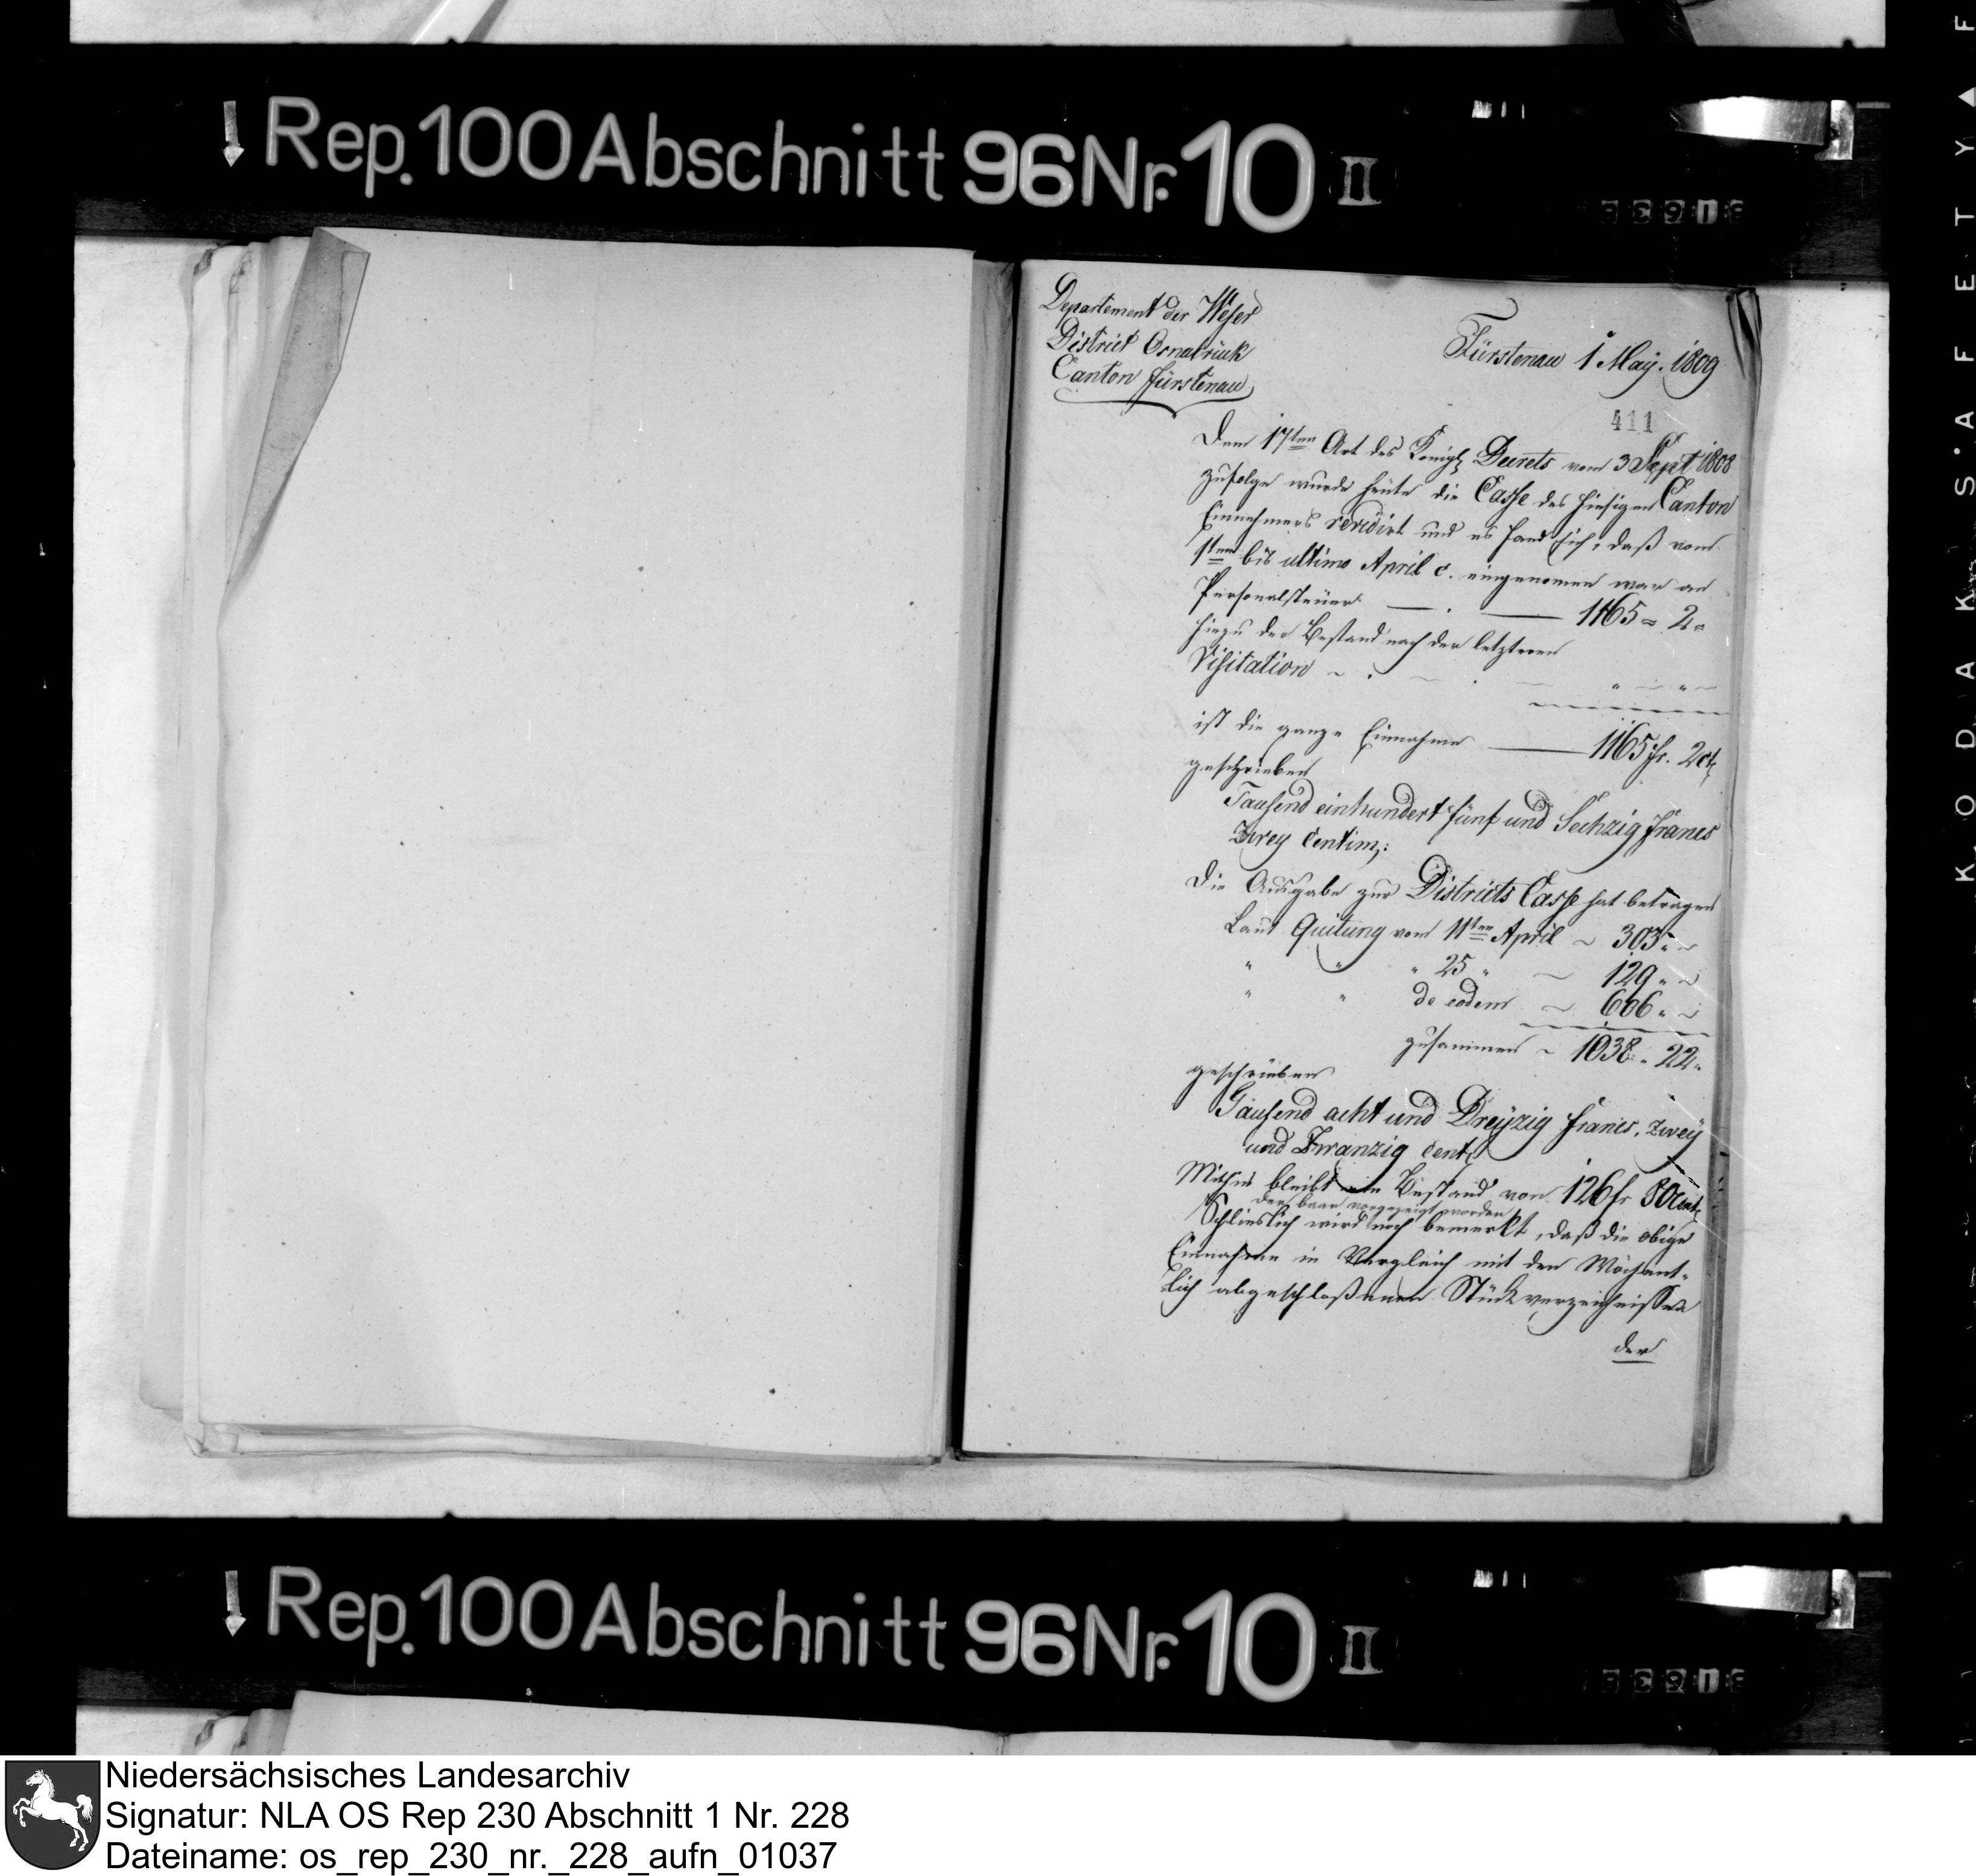 Rep. 100 Abschnitt 96 Nr. 10 II
Departement der Weser
District Osnabrück
Canton Fürstenau
Fürstenau 1 May. 1809
411
Dem 17ten Art des Königl Decrets vom 3 Sept 1808
zufolge wurde heute die Casse des hiesigen Canton
Einnehmers revidirt und es fand sich, daß vom
1ten bis ultimo April c. eingenomen war an
Personalsteuer — . — 1165 " 2 "
hiezu der Bestand nach der letzteren
Visitation ~ . ~ . — " — " —
ist die ganze Einnahme — 1165 fr. 2 ct
geschrieben
Tausend einhundert fünf und Sechzig Francs
zwey Centim:
Die Ausgabe zur Districts Casse hat betragen
Laut Quitung vom 11ten April ~ 303 " ~
" " " 25 " ~ 129 " ~
" " de eodem ~ 606 " ~
zusammen ~ 1038 " 22 "
geschrieben
Tausend acht und Dreyzig Francs, zwey
und Zwanzig Cent
Mithin bleibt ein Bestand von 126 fr 80 Cent
der baar vorgezeigt worden
Schlieslich wird noch bemerkt, daß die obige
Einnahme in Vergleich mit den Wöchent-
lich abgeschloßenen Stückverzeichnissen
der
Rep. 100 Abschnitt 96 Nr. 10 II
KODAK SAFETY
Niedersächsisches Landesarchiv
Signatur: NLA OS Rep 230 Abschnitt 1 Nr. 228
Dateiname: os_rep_230_nr._228_aufn_01037